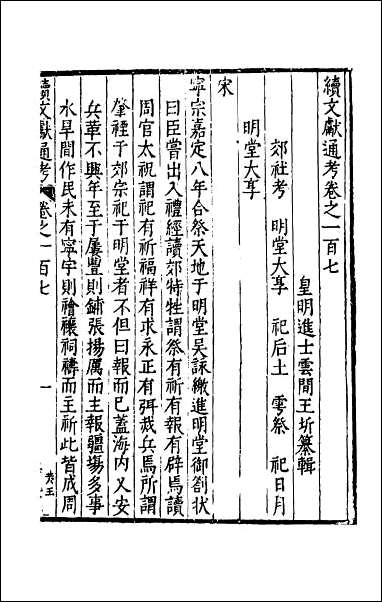 續文獻通考卷之一百七
皇明進士雲間王圻纂輯
郊社考　明堂大享　祀后土　雩祭　祀日月
明堂大享
宋
寧宗嘉定八年合祭天地于明堂吳詠繳進明堂御劄狀
曰臣嘗出入禮經讀郊特牲謂祭有祈有報有辟焉讀
周官太祝謂祀有祈福祥有求永正有弭烖兵焉所謂
肇禋于郊宗祀于明堂者不但曰報而已蓋海内乂安
兵革不興年至于屢豐則鋪張揚厲而主報疆埸多事
水旱間作民未有寧宇則禬禳祠禱而主祈此皆成周
續文獻通考　卷之一百七　一